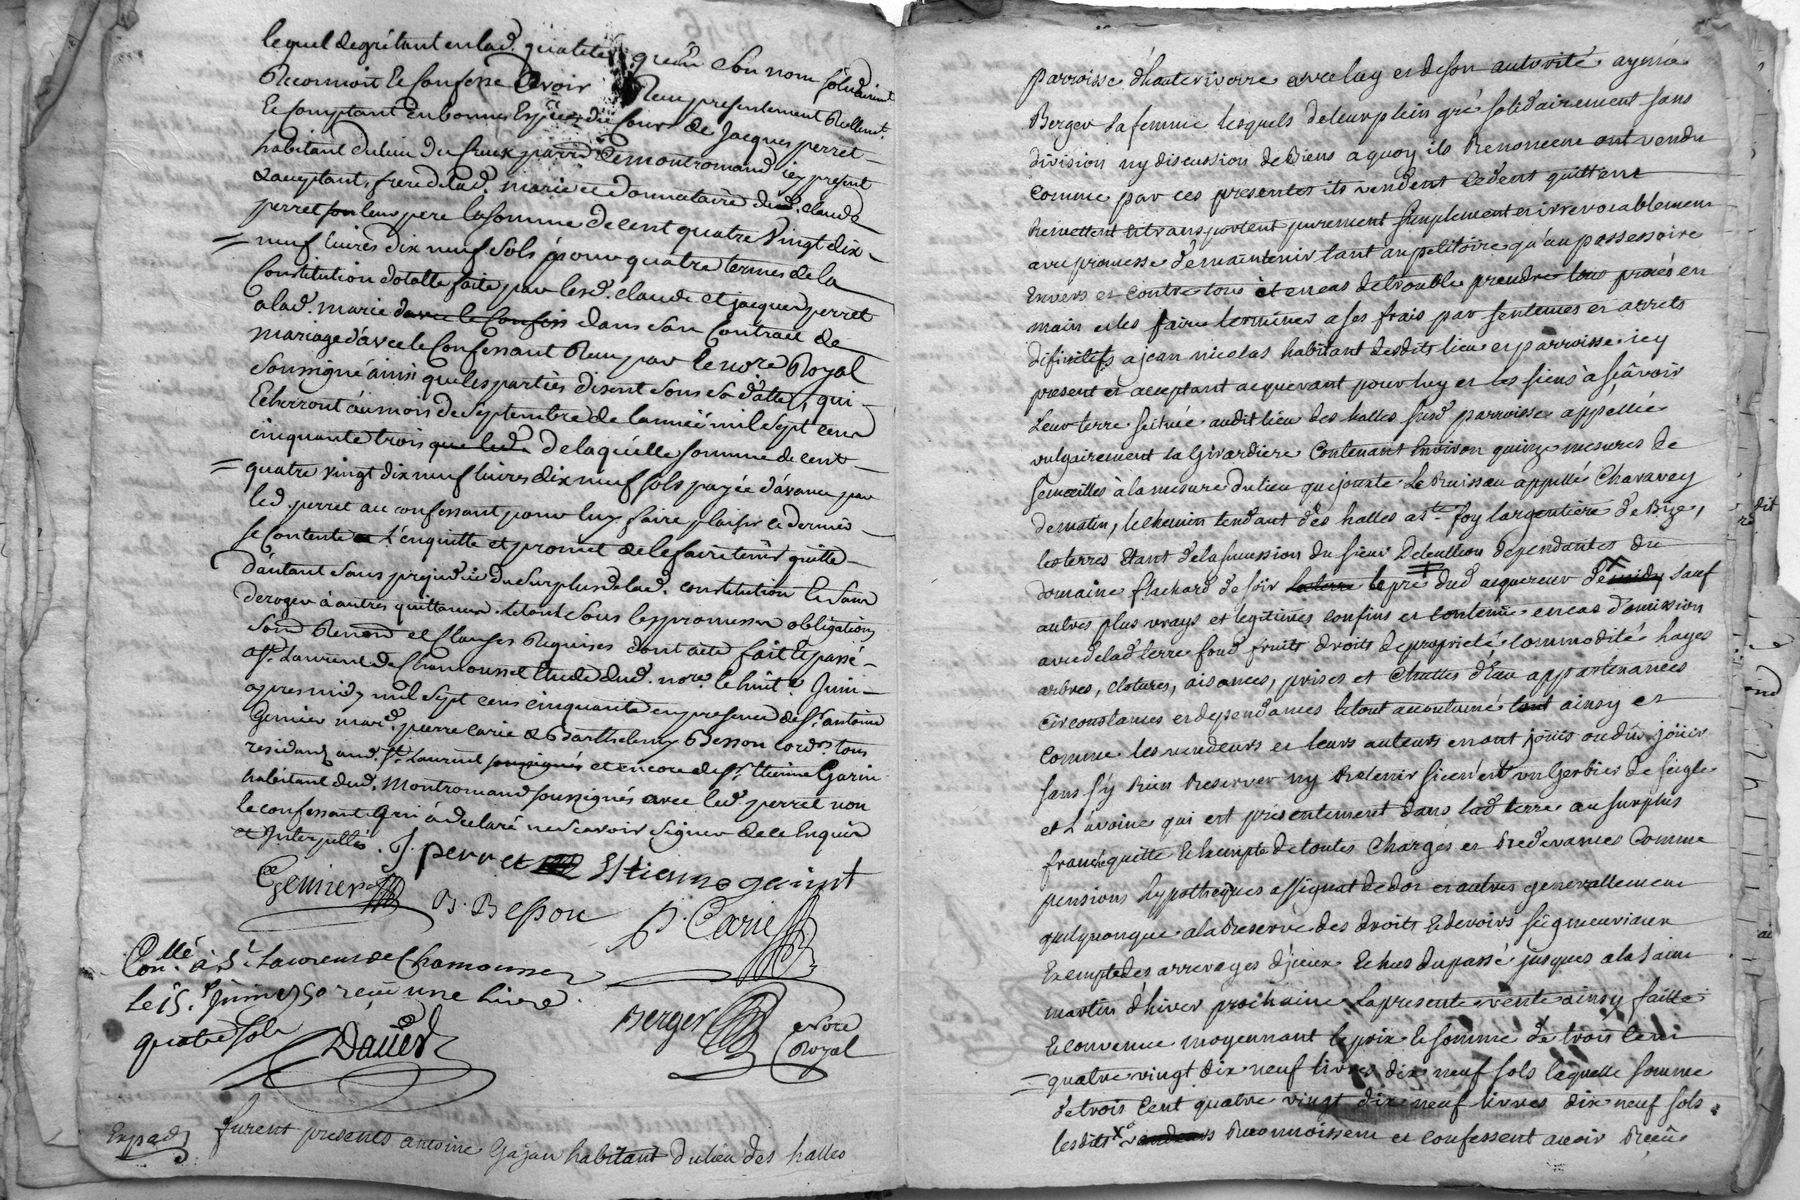 lequel de gré tant en lad. qualité qu'en son nom solidairemt
Reconnoit et Confesse avoir Reçu presentement Réllemt.
Et Comptant en bonnes Espèces du Cours de Jacques perret
habitant du lieu du Crux parr. de montromand icy present
& acceptant, frere de lad. marie et donnataire dud. claude
perret leur pere la somme de cent quatre vingt dix
neuf livres dix neuf sols pour quatre termes de la
Constitution dotalle faite par lesd. claude et jacques perret
a lad. marie dans son Contrait de
mariage d'avec le Confessant Reçu par le nore Royal
soussigné ainsi que les parties disent sous sa datte, qui
Echerront au mois de Septembre de l'année mil sept cens
cinquante trois que led. de laquelle somme de cent
quatre vingt dix neuf livres dix neuf sols payée d'avance par
led. perret au confessant pour luy faire plaisir ce dernier
se Contente L'enquitte et promet de le faire tenir quitte
d'autant sans prejudice du surplus de lad. constitution et sans
deroger à autres quittances. le tout sous les promesses obligations
soum Renon et Clauses Requises dont acte fait et passé
a St. Laurent de Chamousset Etude dud. nore. le huit Juin
apres midy mil sept cens cinquante en presence de sr. antoine
Genier mard. pierre carié & Barthelemy Besson cord.rs tous
residants aud. St. Laurent soussignés et encore de sr. Etienne Garin
habitant dud. Montromand soussignés avec led. perret non
le confessant qui a declaré ne scavoir signer de ce Enquis
et Interpellés. J. perret Estienne gairint
Genier B. Besson P. Carié
Con.llé à St. Laurent de Chamousset
le 15e. juin 1750 reçu une livre
quatre sols
Dauer
Berger nore
Royal
Exped.
furent presents antoine Gajan habitant du lieu des halles
parroisse d'hauterivoire avec luy et de son autorité aymée
Berger sa femme lesquels de leur plein gré solidairement sans
division ny discussion de Biens a quoy ils Renoncent ont vendu
comme par ces presentes ils vendent cedent quittent
Remettent et transportent purement simplement et irrevocablement
avec promesse de maintenir tant au petitoire qu'au possessoire
Envers et contre tous et en cas de trouble prendre tous procès en
main et les faire terminer a ses frais par sentences et arrets
difinitifs a jean nicolas habitant desdits lieu et parroisse icy
present et acceptant acquerant pour luy et les siens à sçavoir
Leur terre scituée audit lieu des halles susd. parroisse appellée
vulgairement la Girardiere Contenant Environ quinze mesures de
semailles à la mesure du lieu qui jouxte Le Ruisseau appellé Charavey
de matin, le chemin tendant des halles a ste. foy l'argentiere de Bize,
les terres Etant de la succession du sieur Deleullion dependantes du
domaine flachard de soir la terre le pré dud. acquereur de midy sauf
autres plus vrays et legitimes confins et contenue en cas d'omission
avec de lad. terre fond fruits droits de proprieté commodité hayes
arbres, clotures, aisances, prises et Chuttes d'Eau appartenances
circonstances et dependances le tout accoutumé tout ainsy et
Comme les vendeurs et leurs auteurs en ont joüis ou dû joüir
sans s'y Rien Reserver ny Retenir si ce n'est un Gerbier de seigle
et L'avoine qui est présentement dans lad. terre au surplus
franche quitte et Exempte de toutes Charges et Redevances Comme
pensions hypotheques assignat de dot et autres generallement
quelquonque a la Reserve des droits et devoirs seigneuriaux
Exempte des arrerages d'jceux Echus du passé jusques a la saint
martin d'hiver prochaine La presente vente ainsy faitte
et convenue moyennant le prix et somme de trois cent
quatre vingt dix neuf livres dix neuf sols laquelle somme
de trois Cent quatre vingt dix neuf livres dix neuf sols
lesdits vendeurs Reconnoissent et confessent avoir Reçüe